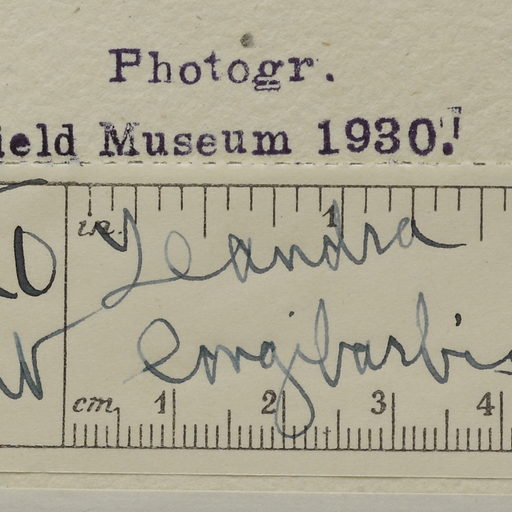 Photogr.
ield Museum 1930.
in. 1
Leandra
longibarbis
cm 1 2 3 4